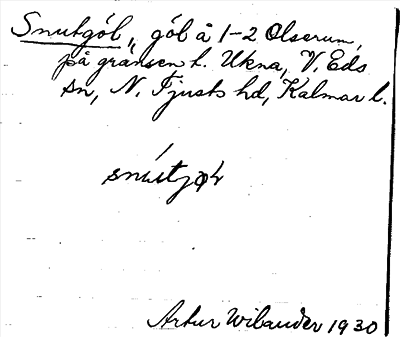 Snutgöl, göl å 1-2 Olserum,
på gränsen t. Ukna, V. Eds
sn, N. Tjusts hd, Kalmar l.
Artur Wibander 1930